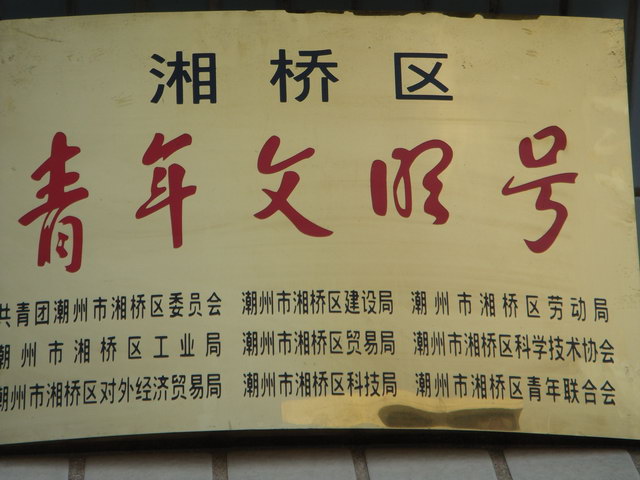 湘桥区
青年文明号
共青团潮州市湘桥区委员会 潮州市湘桥区建设局 潮州市湘桥区劳动局
潮州市湘桥区工业局 潮州市湘桥区贸易局 潮州市湘桥区科学技术协会
潮州市湘桥区对外经济贸易局 潮州市湘桥区科技局 潮州市湘桥区青年联合会